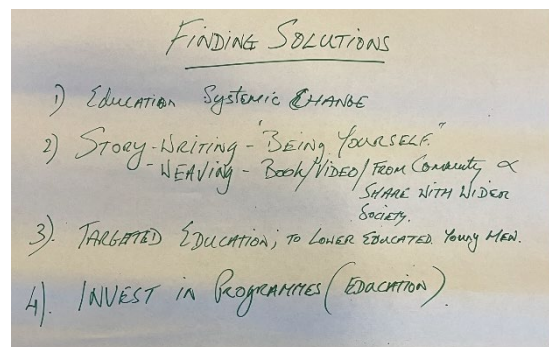 FINDING SOLUTIONS
1) Education Systemic CHANGE
2) STORY-WRITING - "BEING YOURSELF."
- WEAVING - Book/VIDEO/FROM Community &
SHARE WITH WIDER
Society.
3). TARGETED EDUCATION; TO LOWER EDUCATED Young MEN.
4). INVEST IN PROGRAMMES (EDUCATION)